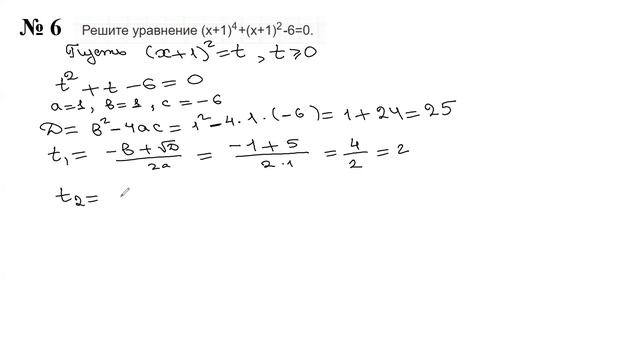 № 6 Решите уравнение (x+1)⁴+(x+1)²-6=0.
Пусть (x+1)² = t, t ⩾ 0
t² + t − 6 = 0
a=1, b=1, c = −6
D = b² − 4ac = 1² − 4·1·(−6) = 1 + 24 = 25
t₁ = (−b + √D)/(2a) = (−1 + 5)/(2·1) = 4/2 = 2
t₂ =